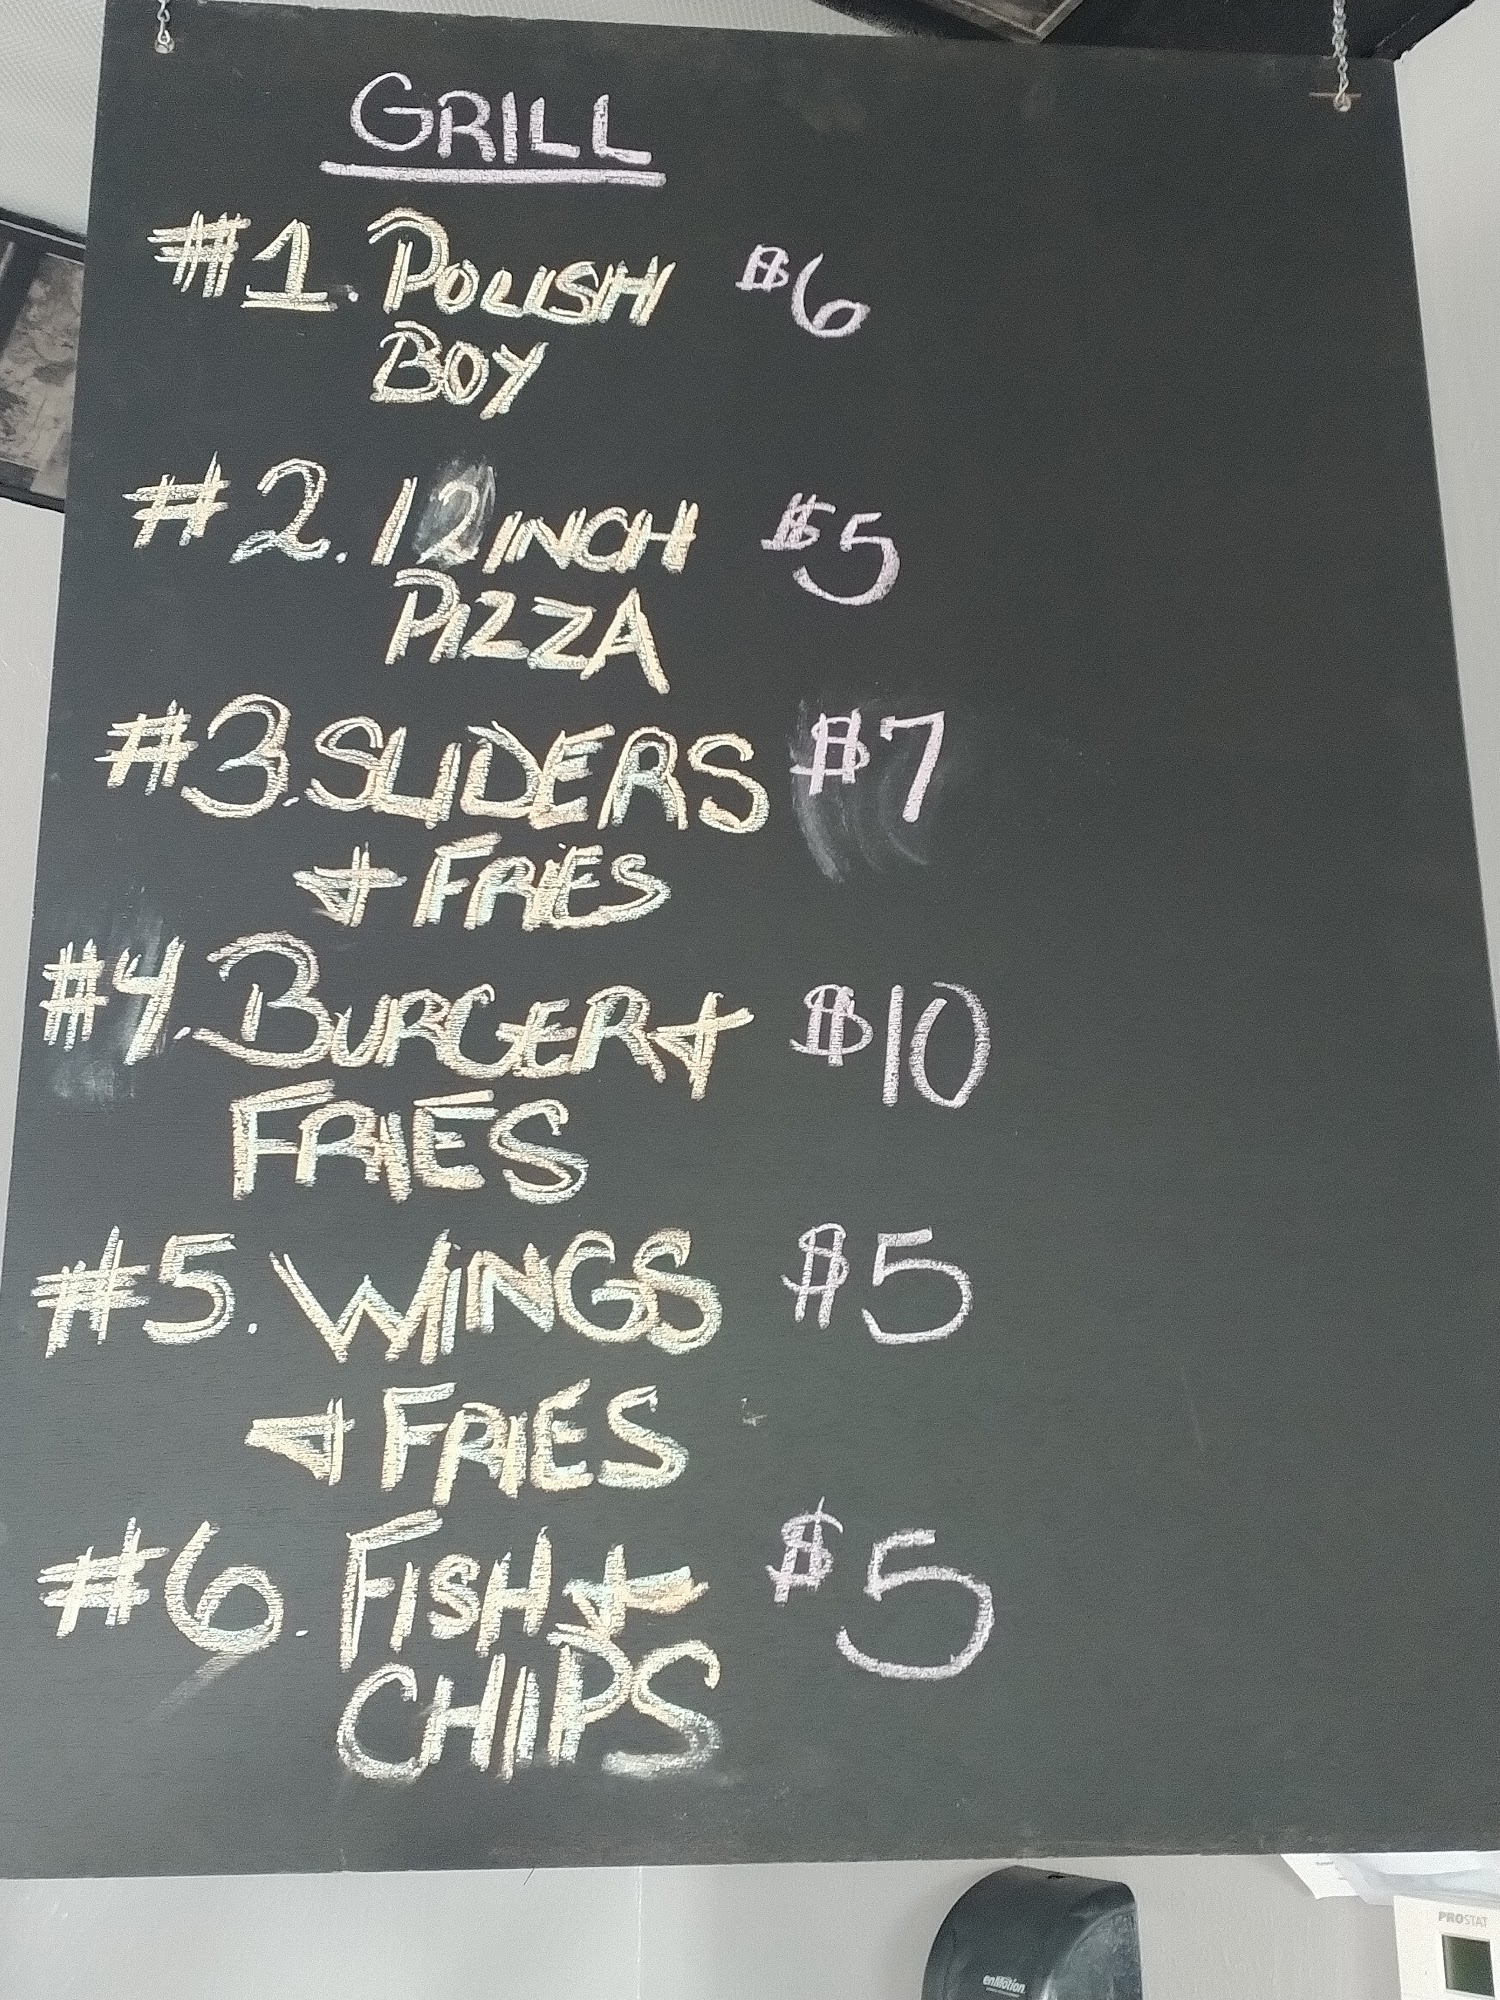 GRILL
#1. POLISH $6
BOY
#2. 12 INCH $5
PIZZA
#3. SLIDERS $7
+ FRIES
#4. BURGER + $10
FRIES
#5. WINGS $5
+ FRIES
#6. FISH +
CHIPS $5
enMotion
PROSTAT